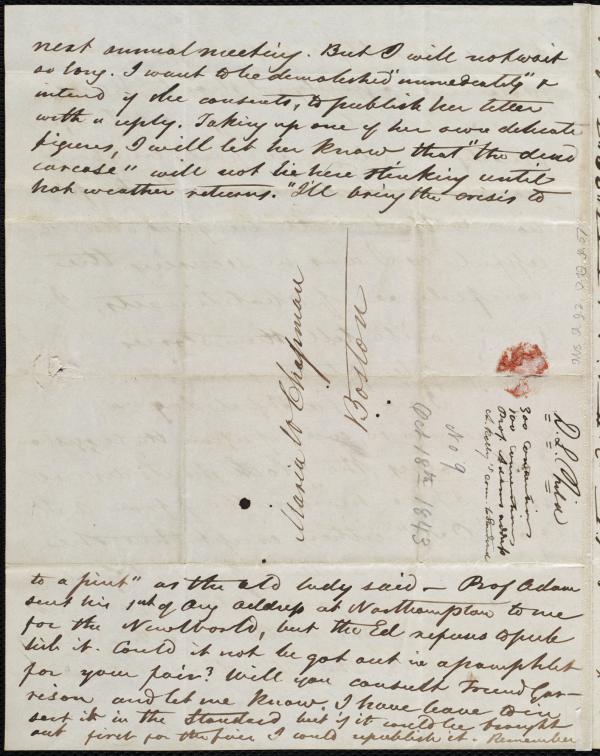 next annual meeting. But I will not wait
so long. I want to be demolished "immediately" &
intend if she consents, to publish her letter
with a reply. Taking up one of her own delicate
figures, I will let her know that "the dead
carcase" will not lie here stinking until
hot weather returns. "I'll bring the crisis to
Maria W Chapman
Boston
No 9
Oct 18th 1843
D. L. Child
300 Conventions
100 conventions
Prof Adams address
Ms. A. 9.2
to a pint" as the old lady said — Prof Adam
sent his 1st of Aug address at Northampton to me
for the New World, but the Ed refuses to pub
lish it. Could it not be got out in a pamphlet
for your fair? Will you consult Friend Gar-
rison and let me know. I have leave to in
sert it in the Standard but if it could be brought
out first for the fair I could republish it. Remember